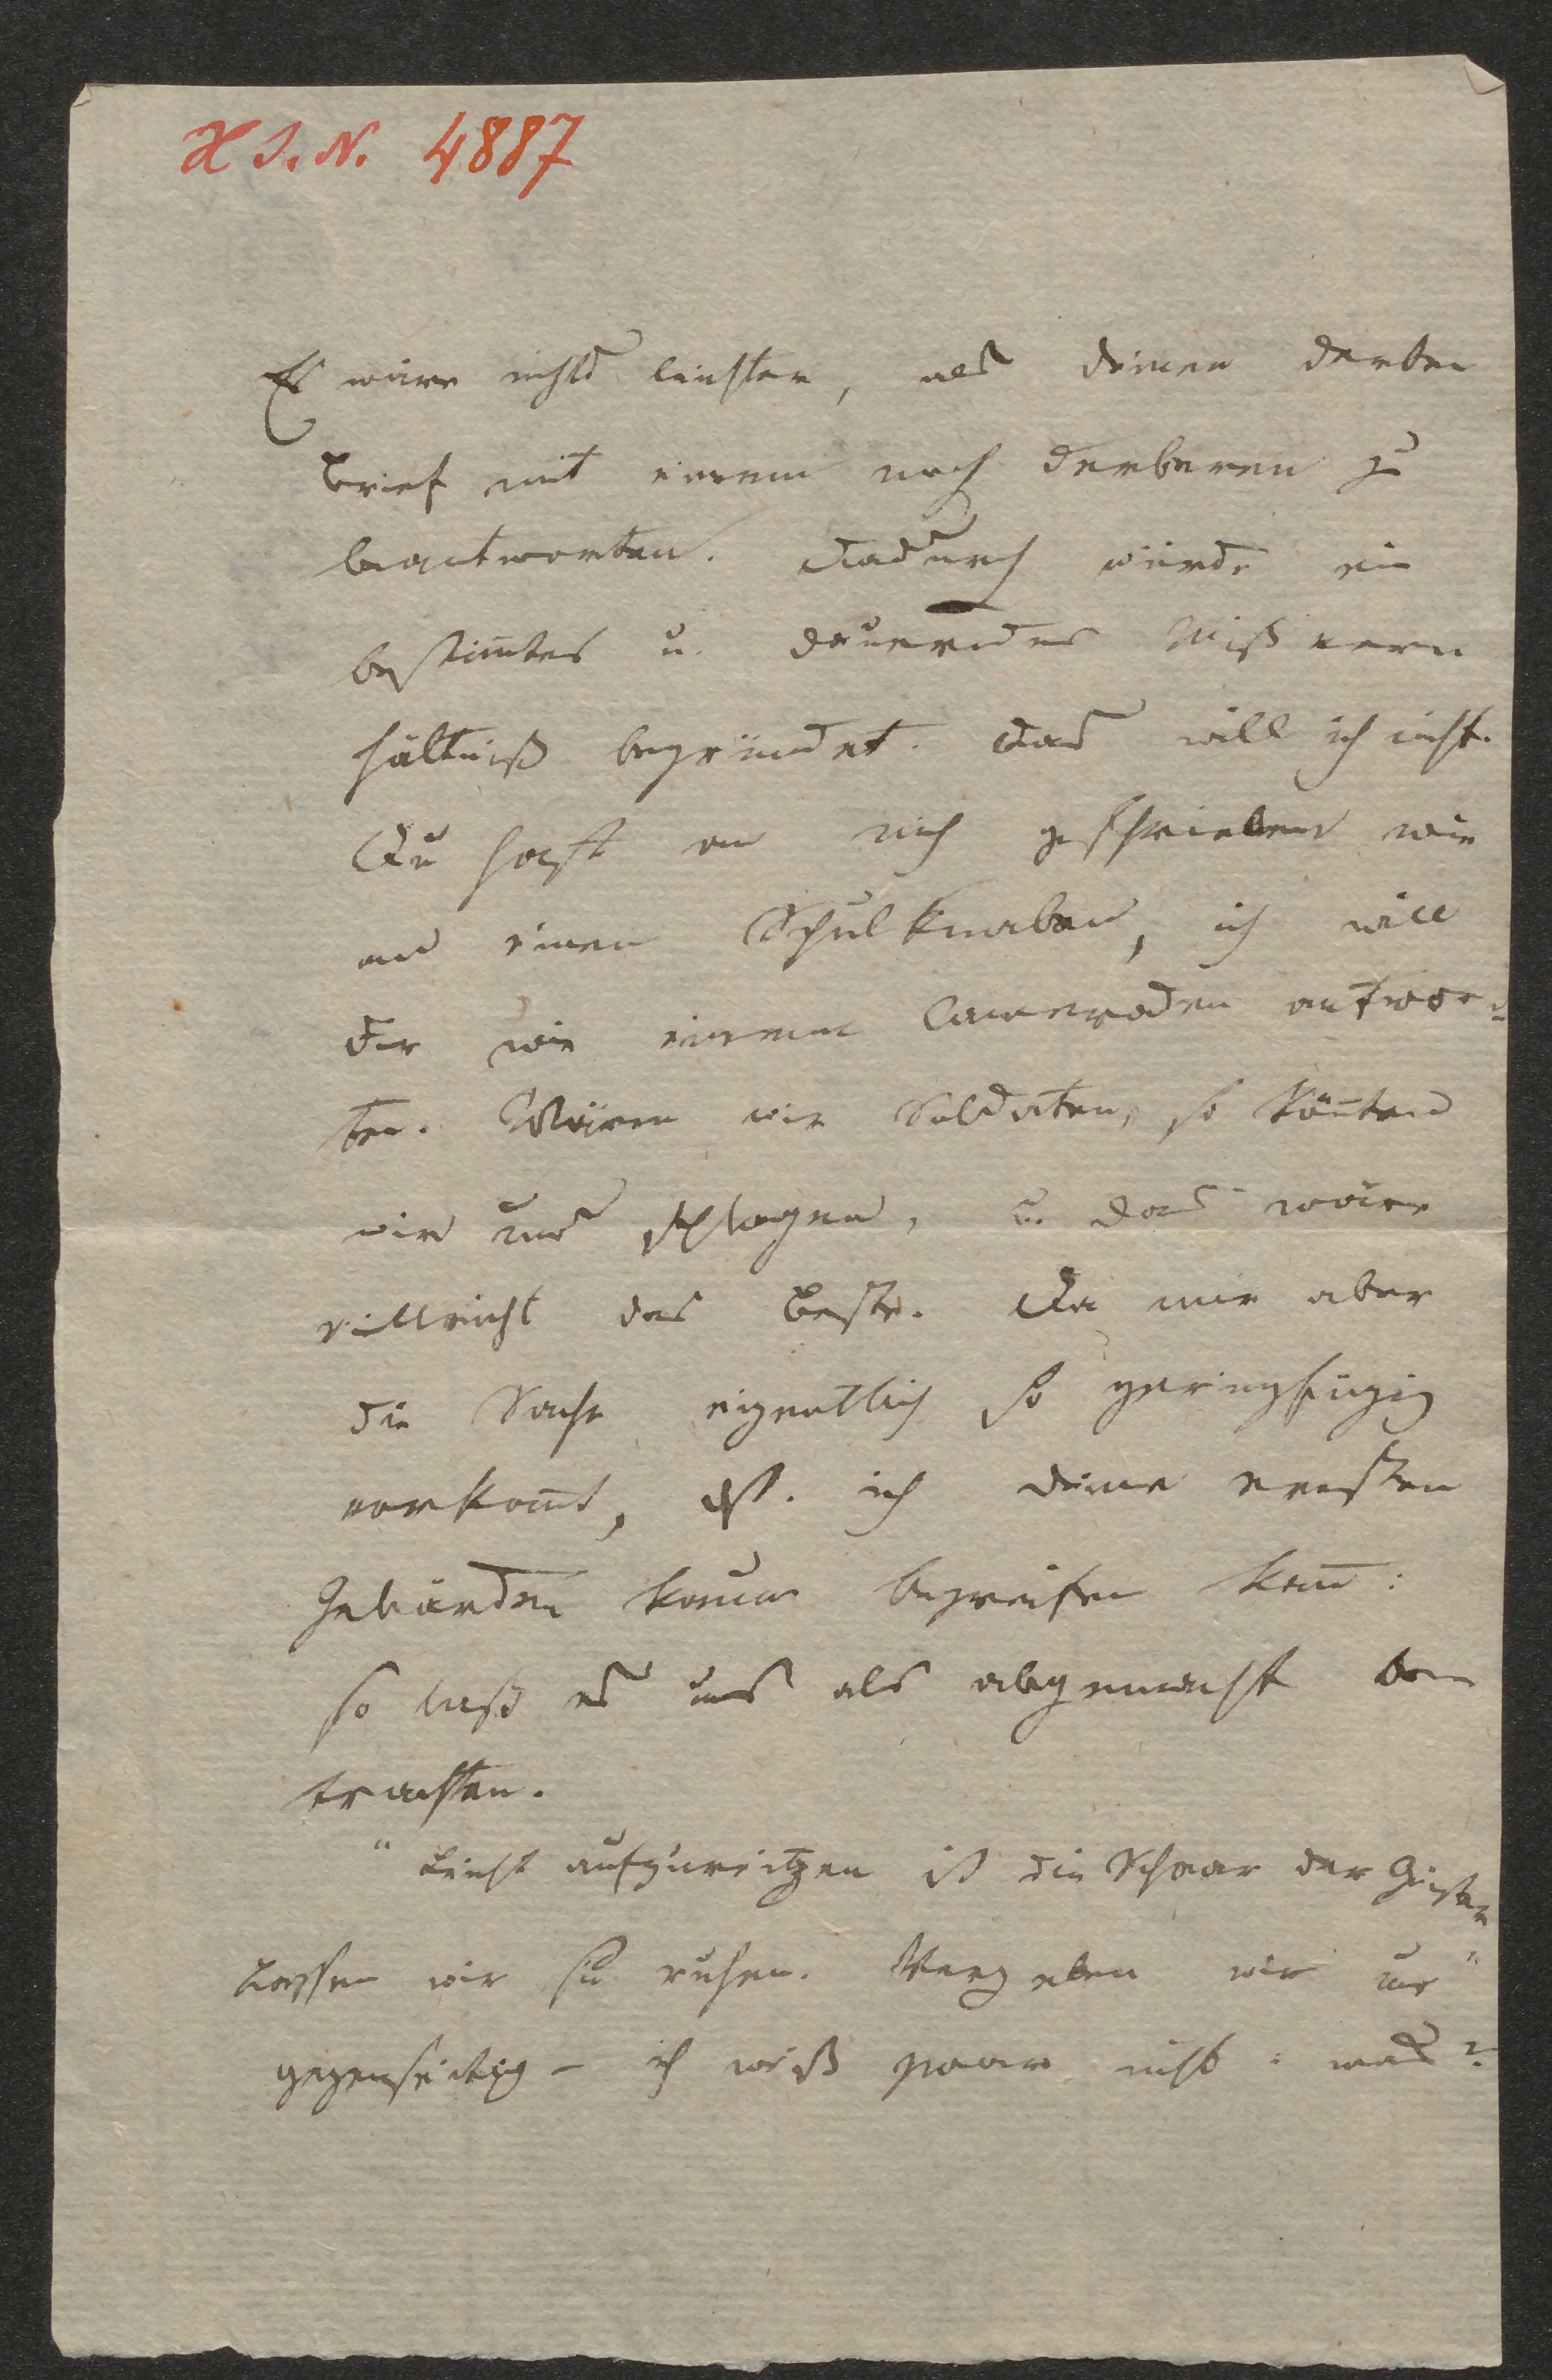 H I. N. 4887
Es wäre nichts leichter, als deinen derben
Brief mit einem noch derberen zu
beantworten. Dadurch würde ein
bestim̄tes u. dauerndes Mißver=
hältniß begründet. Das will ich nicht.
Du hast an mich geschrieben wie
an einen Schulknaben, ich will
dir wie einem Cameraden antwor=
ten. Wären wir Soldaten, so kön̄ten
wir uns schlagen, u. das wäre
vielleicht das Beste. Da mir aber
die Sache eigentlich so geringfügig
vorkom̄t, dß. ich deine ernsten
Gebärden kaum begreifen kan̄:
so laß es uns als abgemacht be=
trachten.
"Leicht aufzureitzen ist die Schaar der Geister
Lassen wir sie ruhen. Vergeben wir uns"
gegenseitig – ich weiß zwar nicht: was?